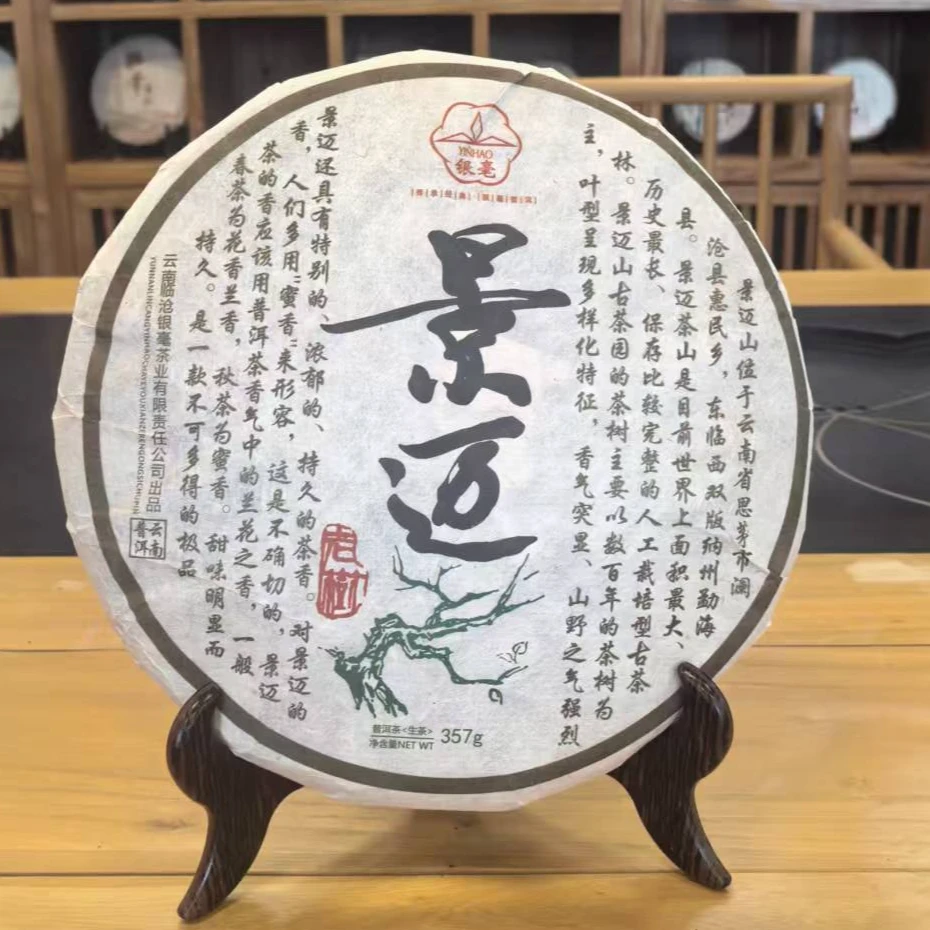 YINHAO
银毫
景迈
老树
景迈山位于云南省思茅市澜
沧县惠民乡，东临西双版纳州勐海
县。景迈茶山是目前世界上面积最大、
历史最长、保存比较完整的人工栽培型古茶
林。景迈山古茶园的茶树主要以数百年的茶树为
主，叶型呈现多样化特征，香气突显、山野之气强烈
景迈还具有特别的、浓郁的、持久的茶香。对景迈的
香，人们多用“蜜香”来形容，这是不确切的，景迈
茶的香应该用普洱茶香气中的兰花之香，一般
春茶为花香兰香，秋茶为蜜香。甜味明显而
持久。是一款不可多得的极品
云南临沧银毫茶业有限责任公司出品
YUNNANLINCANGYINHAOCHAYEYOUXIANZERENGONGSICHUPIN
云南
普洱
普洱茶<生茶>
净含量NET WT 357g